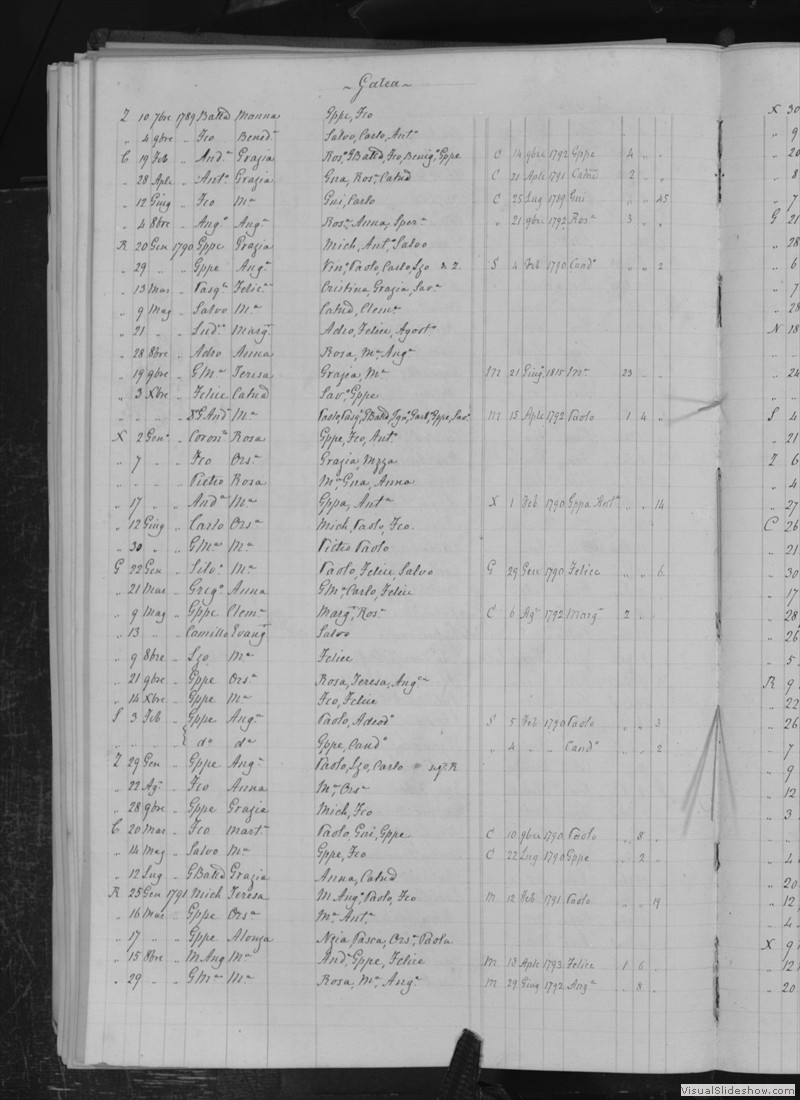 ~ Galea ~
Z 10 7bre 1789 Battd Manna Gppe, Fco
„ 4 9bre „ Fco Bened.a Salvo, Carlo, Ant.a
C 19 Feb „ And.a Grazia Ros.a, GBattd, Fco, Benig.o, Gppe C 14 9bre 1792 Gppe 4 „ „
„ 28 Aple „ Ant.o Grazia Gna, Ros.a, Catnd C 21 Aple 1791 Catnd 2 „ „
„ 12 Giug „ Fco M.a Gui, Carlo C 25 Lug 1789 Gui „ „ 45
„ 4 8bre „ Ang.o Ang.a Ros.a, Anna, Sper.a „ 21 9bre 1792 Ros.a 3 „ „
R 20 Gen 1790 Gppe Grazia Mich, Ant.o, Salvo
„ 29 „ „ Gppe Ang.a Vin.o, Paolo, Carlo, Lzo & Z. S 4 Feb 1790 Cand.o „ „ 2
„ 13 Mar „ Pasq.e Felic.a Cristina, Grazia, Sav.a
„ 9 Mag „ Salvo M.a Catnd, Clem.a
„ 21 „ „ Lud.o Marg.a Adeo, Felice, Agost.o
„ 28 8bre „ Adeo Anna Rosa, M.a Ang.a
„ 19 9bre „ GM.a Teresa Grazia, M.a M 21 Giug 1815 M.a 23 „ „
„ 3 Xbre „ Felice Catnd Sav.o, Gppe
„ „ „ „ Dr GAnd.a M.a Paolo, Pasq.e, GBattd, Ign.o, Gasp.e, Gppe, Sav.o M 15 Aple 1792 Paolo 1 4 „
X 2 Gen „ Coron.o Rosa Gppe, Fco, Ant.o
„ 7 „ „ Fco Ors.a Grazia, Mzza
„ „ „ „ Pietro Rosa M.a Gna, Anna
„ 17 „ „ And.a M.a Gppa, Ant.a X 1 Feb 1790 Gppa Ant.a „ „ 14
„ 12 Giug „ Carlo Ors.a Mich, Paolo, Fco
„ 30 „ „ GM.a M.a Pietro Paolo
G 22 Gen „ Silv.o M.a Paolo, Felice, Salvo G 29 Gen 1790 Felice „ „ 6
„ 21 Mar „ Greg.o Anna GM.a, Carlo, Felice
„ 9 Mag „ Gppe Clem.a Marg.a, Ros.a C 6 Ag.o 1792 Marg.a 2 „ „
„ 13 „ „ Camillo Evang.a Salvo
„ 9 8bre „ Lzo M.a Felice
„ 21 9bre „ Gppe Ors.a Rosa, Teresa, Ang.ca
„ 14 Xbre „ Gppe M.a Fco, Felice
S 3 Feb „ Gppe Ang.a Paolo, Adeod.o S 5 Feb 1790 Paolo „ „ 3
„ „ „ „ { do do Gppe, Cand.o „ 4 „ „ Cand.o „ „ 2
Z 29 Gen „ Gppe Ang.a Paolo, Lzo, Carlo
„ 22 Ag.o „ Fco Anna M.a, Ors.a
„ 28 9bre „ Gppe Grazia Mich, Fco
C 20 Mar „ Fco Mart.a Paolo, Gui, Gppe C 10 9bre 1790 Paolo „ 8 „
„ 14 Mag „ Salvo M.a Gppe, Fco C 22 Lug 1790 Gppe „ 2 „
„ 12 Lug „ GBattd Grazia Anna, Catnd
R 25 Gen 1791 Mich Teresa M. Ang.o, Paolo, Fco M 12 Feb 1791 Paolo „ „ 19
„ 16 Mar „ Gppe Ors.a M.a Ant.a
„ 17 „ „ Gppe Alonza Nzia Pasca, Ors.a, Paola
„ 15 8bre „ M.Ang M.a And.a, Gppe, Felice M 18 Aple 1793 Felice 1 6 „
„ 29 „ GM.a M.a Rosa, M.a, Ang.a M 29 Giug 1792 Ang.a „ 8 „
X 30
„ 9
„ 20
„ 8
„ 7
G 21
„ 28
„ 6
„ 7
„ 28
N 18
„ „
„ 24
„ „
S 4
„ 21
Z 6
„ 4
„ 27
C 26
„ 21
„ 30
„ 17
„ 28
„ 26
„ 5
R 9
„ 22
„ 26
„ 7
„ 9
„ 12
„ 3
„ 4
„ 20
„ 12
„ 4
X 9
„ 12
„ 20
VisualSlideshow.com